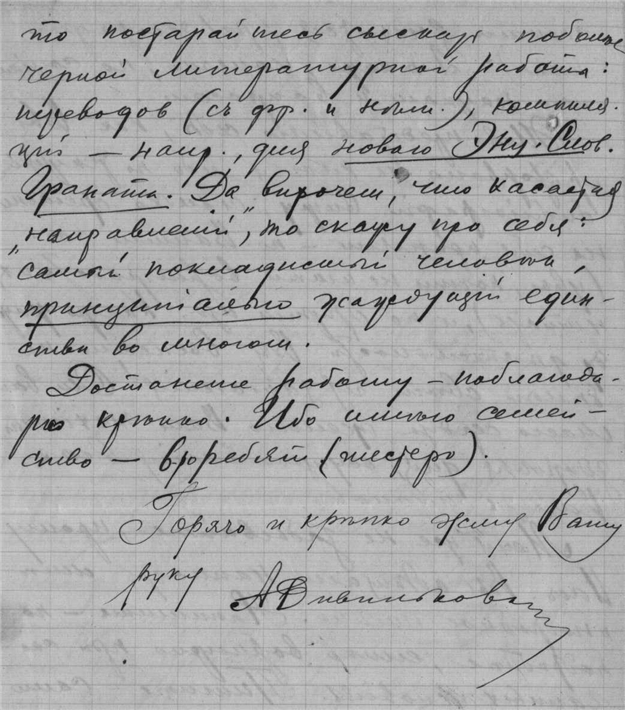 то постарайтесь сыскать побольше
черной литературной работы:
переводов (съ фр. и ним.), компиля-
цій — напр., для новаго Энц. Слов.
Граната. Да впрочем, что касается
"направленій", то скажу про себя:
самый покладистый человѣк,
принципіально жаждущій един-
ства во многом.
Достанете работу — поблагода-
рю крѣпко. Ибо имѣю семей-
ство — ребят (шестеро).
Горячо и крѣпко жму Вашу
руку АДивильковск